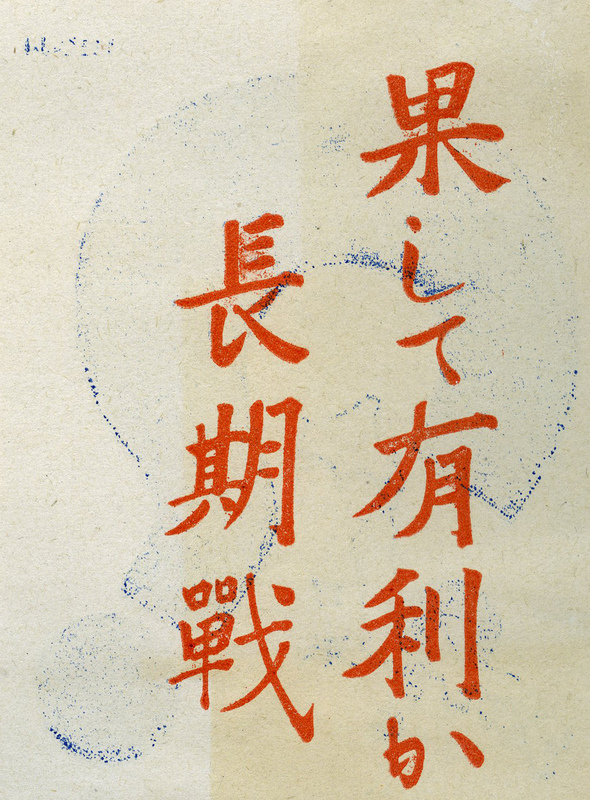 果して有利か
長期戰